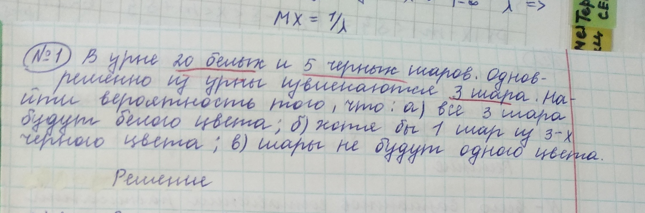 MX = 1/λ
№1 В урне 20 белых и 5 черных шаров. Однов-
ременно из урны извлекаются 3 шара. На-
йти вероятность того, что: а) все 3 шара
будут белого цвета; б) хотя бы 1 шар из 3-х
черного цвета; в) шары не будут одного цвета.
Решение